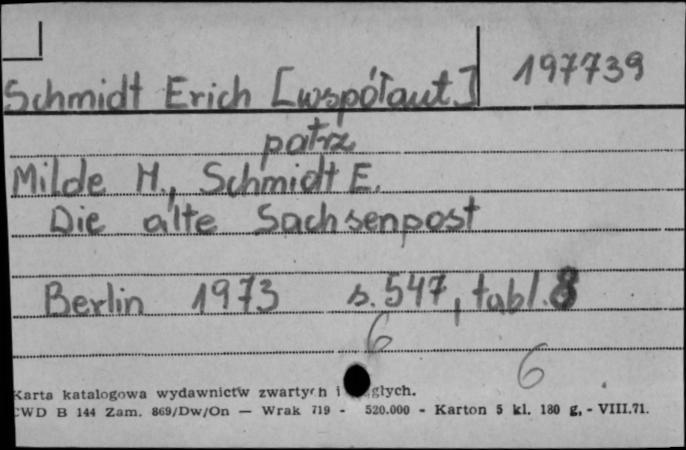 Schmidt Erich [współaut.] 197739
patrz
Milde H., Schmidt E.
Die alte Sachsenpost
Berlin 1973 s. 547, tabl. 8
6
6
Karta katalogowa wydawnictw zwartych i głych.
CWD B 144 Zam. 869/Dw/On — Wrak 719 - 520.000 - Karton 5 kl. 180 g, - VIII.71.